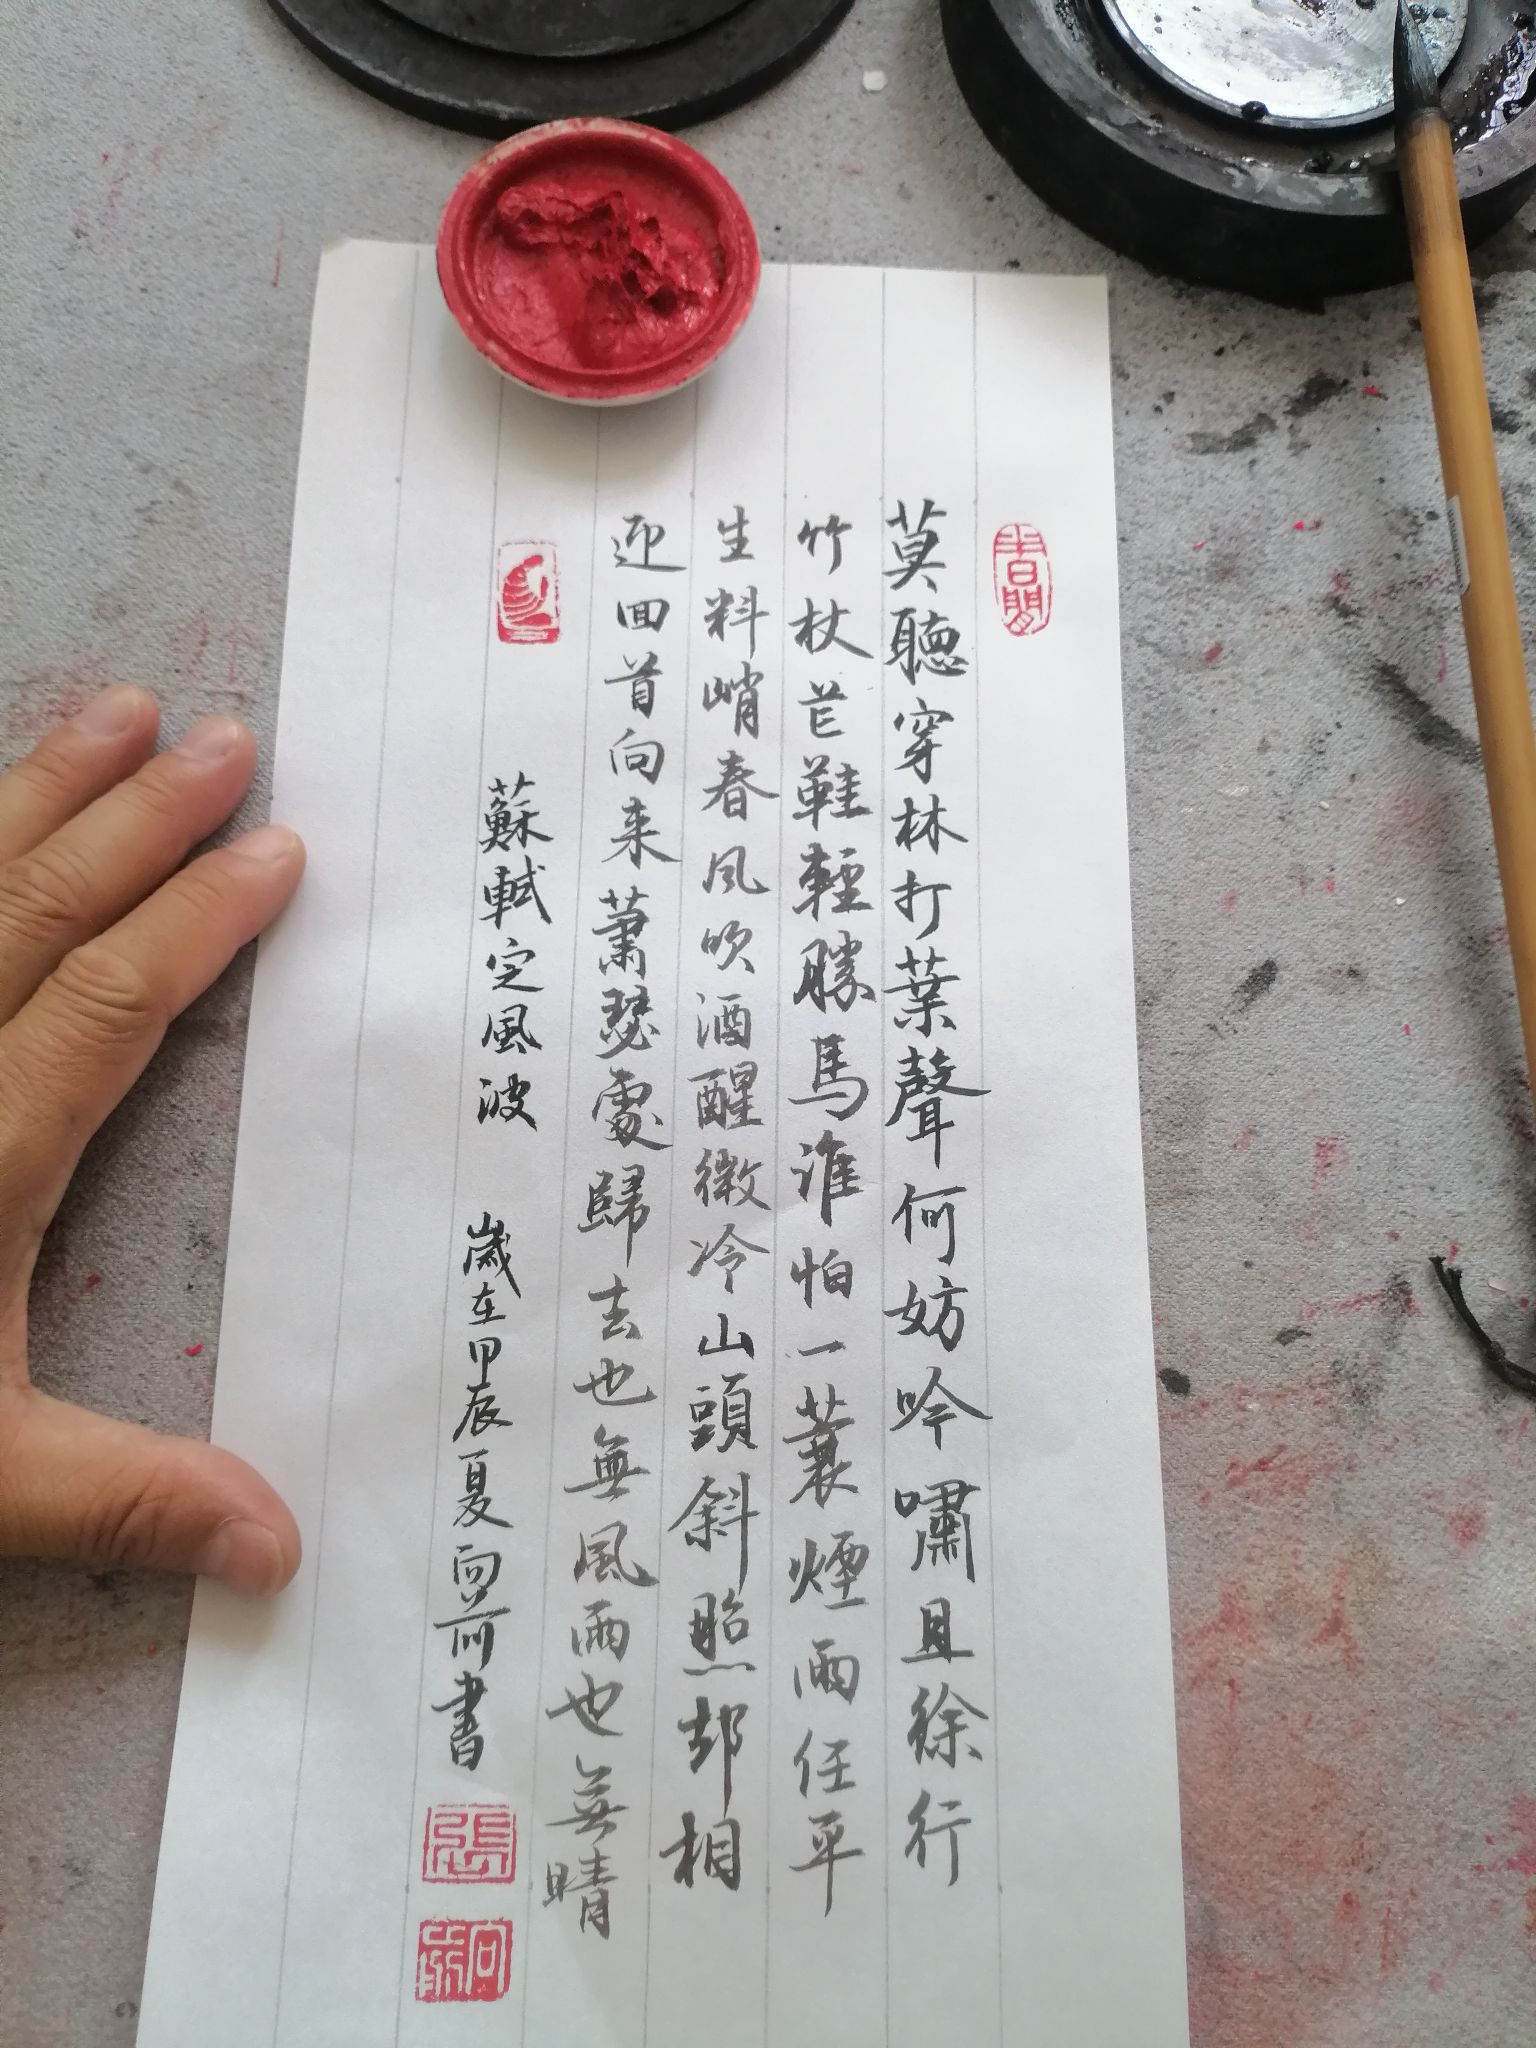 莫聽穿林打葉聲何妨吟嘯且徐行
竹杖芒鞋輕勝馬誰怕一蓑煙雨任平
生料峭春风吹酒醒微冷山頭斜照却相
迎回首向来蕭瑟處歸去也無風雨也無晴
蘇軾定風波 歲在甲辰夏向前書
半日閒
張